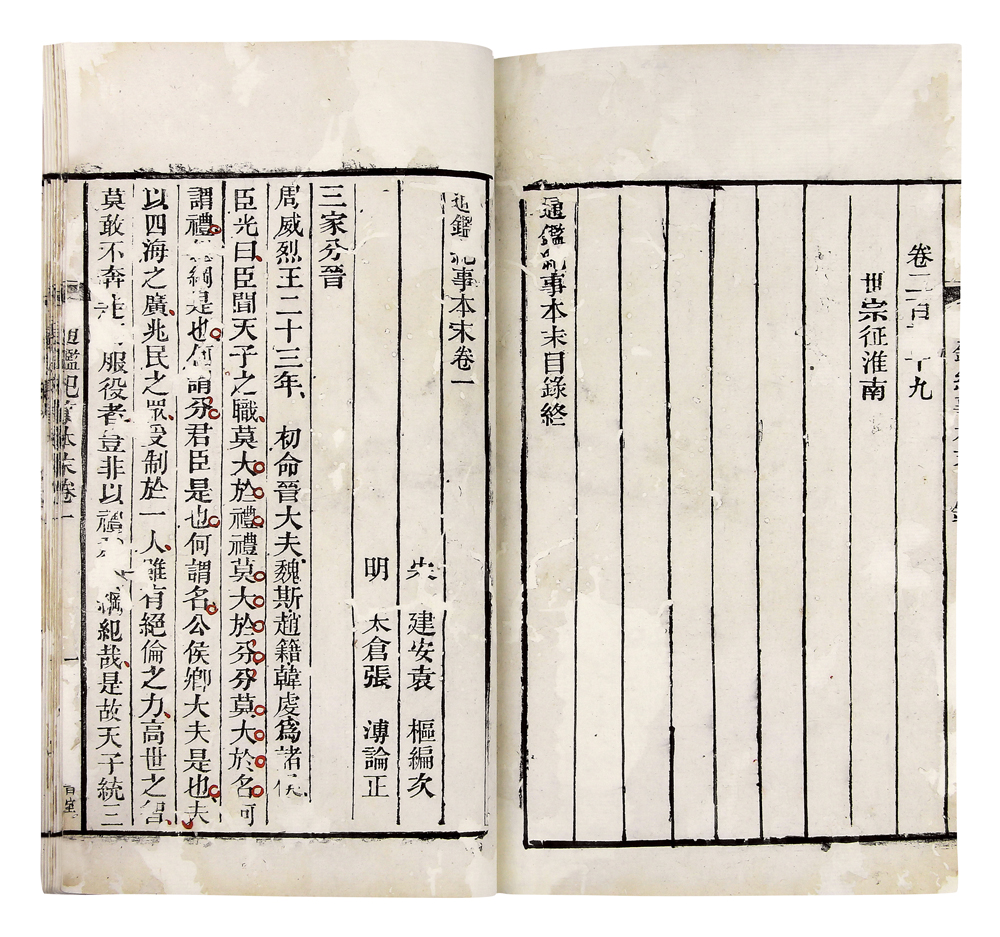 卷二百 十九
世宗征淮南
通鑑紀事本末目錄終
通鑑紀事本末卷一
宋 建安袁 樞編次
明 太倉張 溥論正
三家分晉
周威烈王二十三年、初命晉大夫魏斯趙籍韓虔爲諸侯
臣光曰臣聞天子之職莫大於禮禮莫大於分分莫大於名何
謂禮 綱是也何謂分君臣是也何謂名公侯卿大夫是也夫
以四海之廣兆民之眾受制於一人雖有絕倫之力高世之智
莫敢不奔走 服役者豈非以禮 綱紀哉是故天子統三
通鑑紀事本末卷一
一